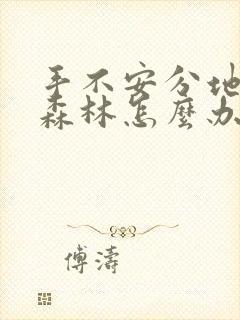 手不安分地
森林怎麼办
傅濤